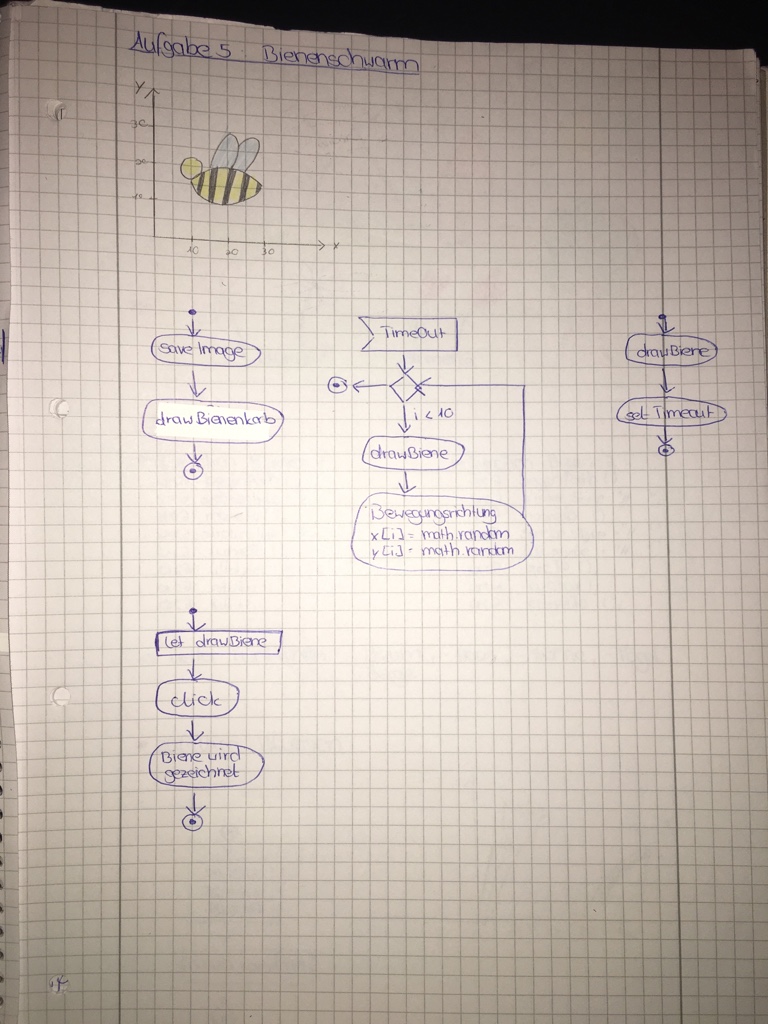 Aufgabe 5: Bienenschwarm
y
30
20
10
10 20 30 x
save Image
draw Bienenkorb
TimeOut
i < 10
drawBiene
Bewegungsrichtung
x[i] = math.random
y[i] = math.random
drawBiene
set Timeout
let drawBiene
click
Biene wird
gezeichnet